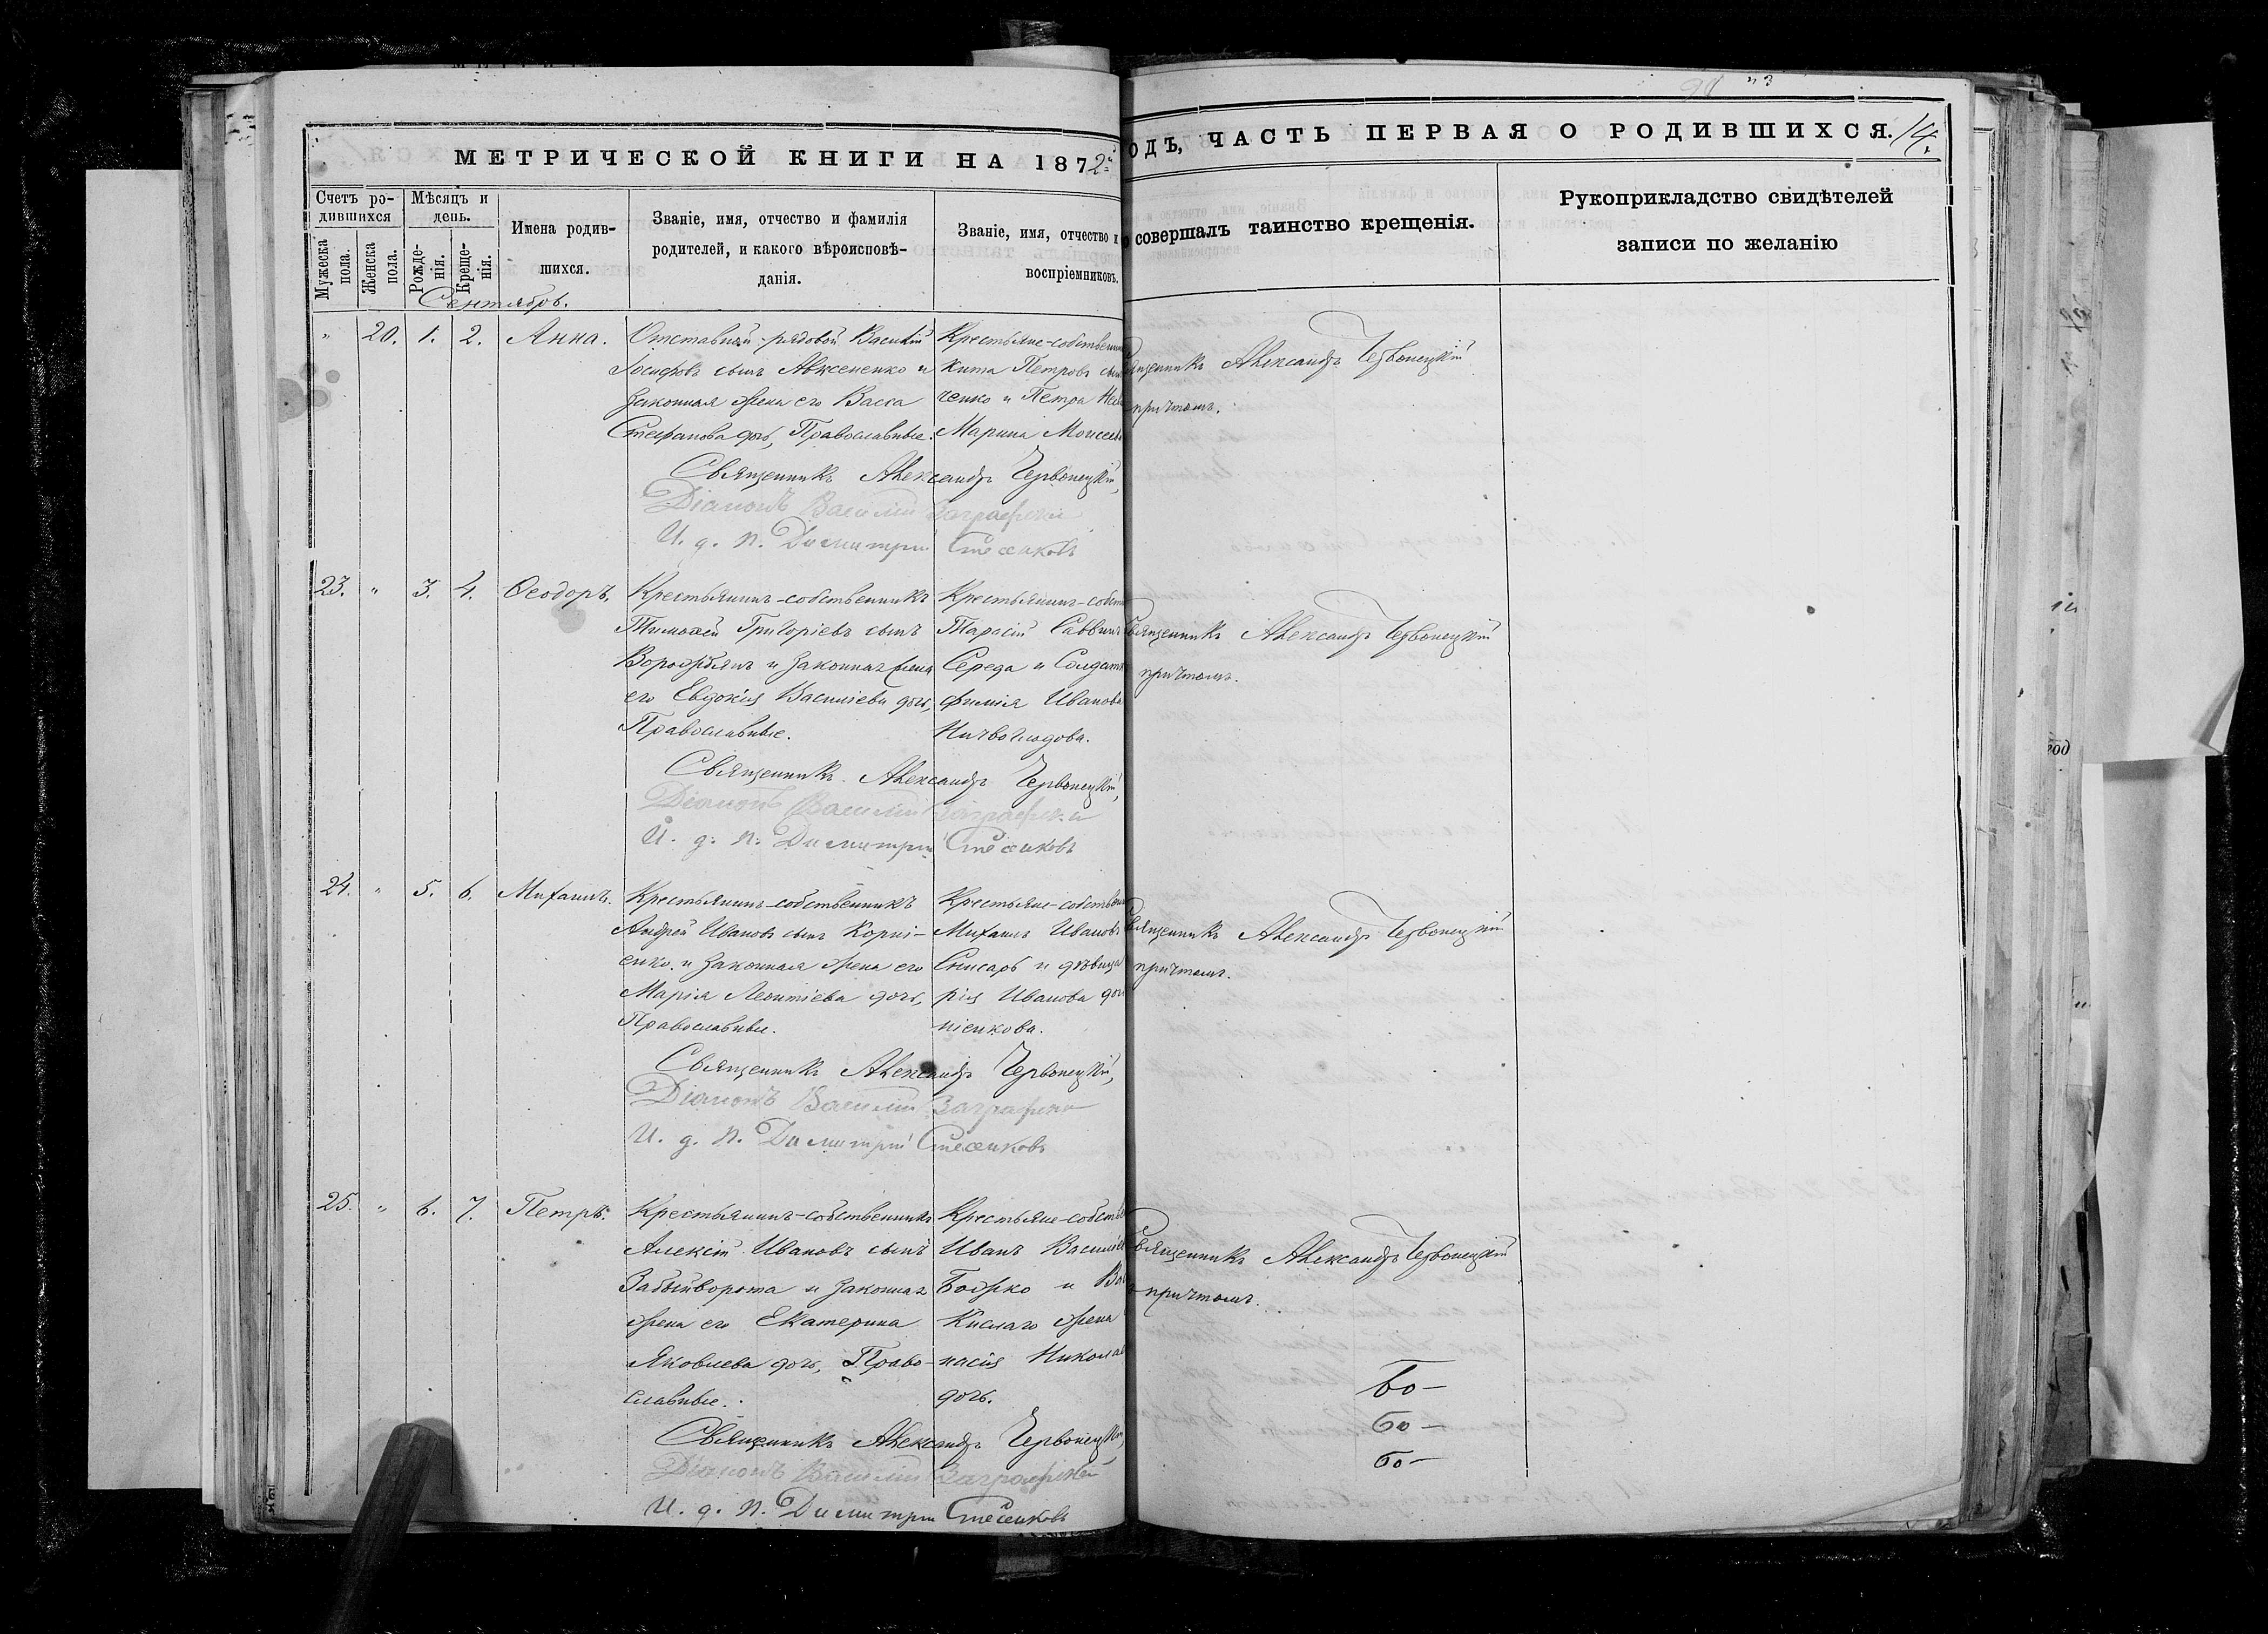 МЕТРИЧЕСКОЙ КНИГИ НА 1872й
ОДЪ, ЧАСТЬ ПЕРВАЯ О РОДИВШИХСЯ. 14.
Счетъ ро-
дившихся
Мужеска
пола.
Женска
пола.
Мѣсяцъ и
день.
Рожде-
нія.
Креще-
нія.
Имена родив-
шихся.
Званіе, имя, отчество и фамилія
родителей, и какого вѣроисповѣ-
данія.
Званіе, имя, отчество и
воспріемниковъ.
совершалъ таинство крещенія.
Рукоприкладство свидѣтелей
записи по желанію
Сентябрь.
" 20. 1. 2. Анна.
Отставный рядовой Василій
Іосифовъ сынъ Авксененко и
законная жена его Васса
Стефанова дочь, Православные.
Крестьяне-собственни
кита Петровъ сын
ченко и Петра
Марина Моисеев
Священникъ Александръ Червонецкій
причтомъ.
Священникъ Александръ Червонецкій,
Діаконъ Василій Заграфскій
И. д. п. Димитрій
23. " 3. 4. Ѳеодоръ.
Крестьянинъ-собственникъ
Тимоѳей Григоріевъ сынъ
Ворожбянъ и законная жена
его Евдокія Василіева дочь,
Православные.
Крестьянинъ-собст
Тарасій Саввинъ
Середа и Солдат
фимія Иванова
Ничвоглодова.
Священникъ Александръ Червонецкій
причтомъ.
Священникъ Александръ Червонецкій,
Діаконъ Василій Заграфскій
И. д. п. Димитрій
24. " 5. 6. Михаилъ.
Крестьянинъ-собственникъ
Андрей Ивановъ сынъ Корні-
енко и законная жена его
Марія Леонтіева дочь,
Православные.
Крестьяне-собствен
Михаилъ Ивановъ
Слисарь и дѣвица
рія Иванова доч
ніенкова.
Священникъ Александръ Червонецкій
причтомъ.
Священникъ Александръ Червонецкій,
Діаконъ Василій Заграфскій
И. д. п. Димитрій
25. " 6. 7. Петръ.
Крестьянинъ-собственникъ
Алексій Ивановъ сынъ
Забыйворота и законная
жена его Екатерина
Яковлева дочь, Право-
славные.
Крестьяне-собств
Иванъ Василіев
Божко и Ва
Кислаго жена
насія Никола
дочь.
Священникъ Александръ Червонецкій
причтомъ.
Священникъ Александръ Червонецкій,
Діаконъ Василій Заграфскій
И. д. п. Димитрій